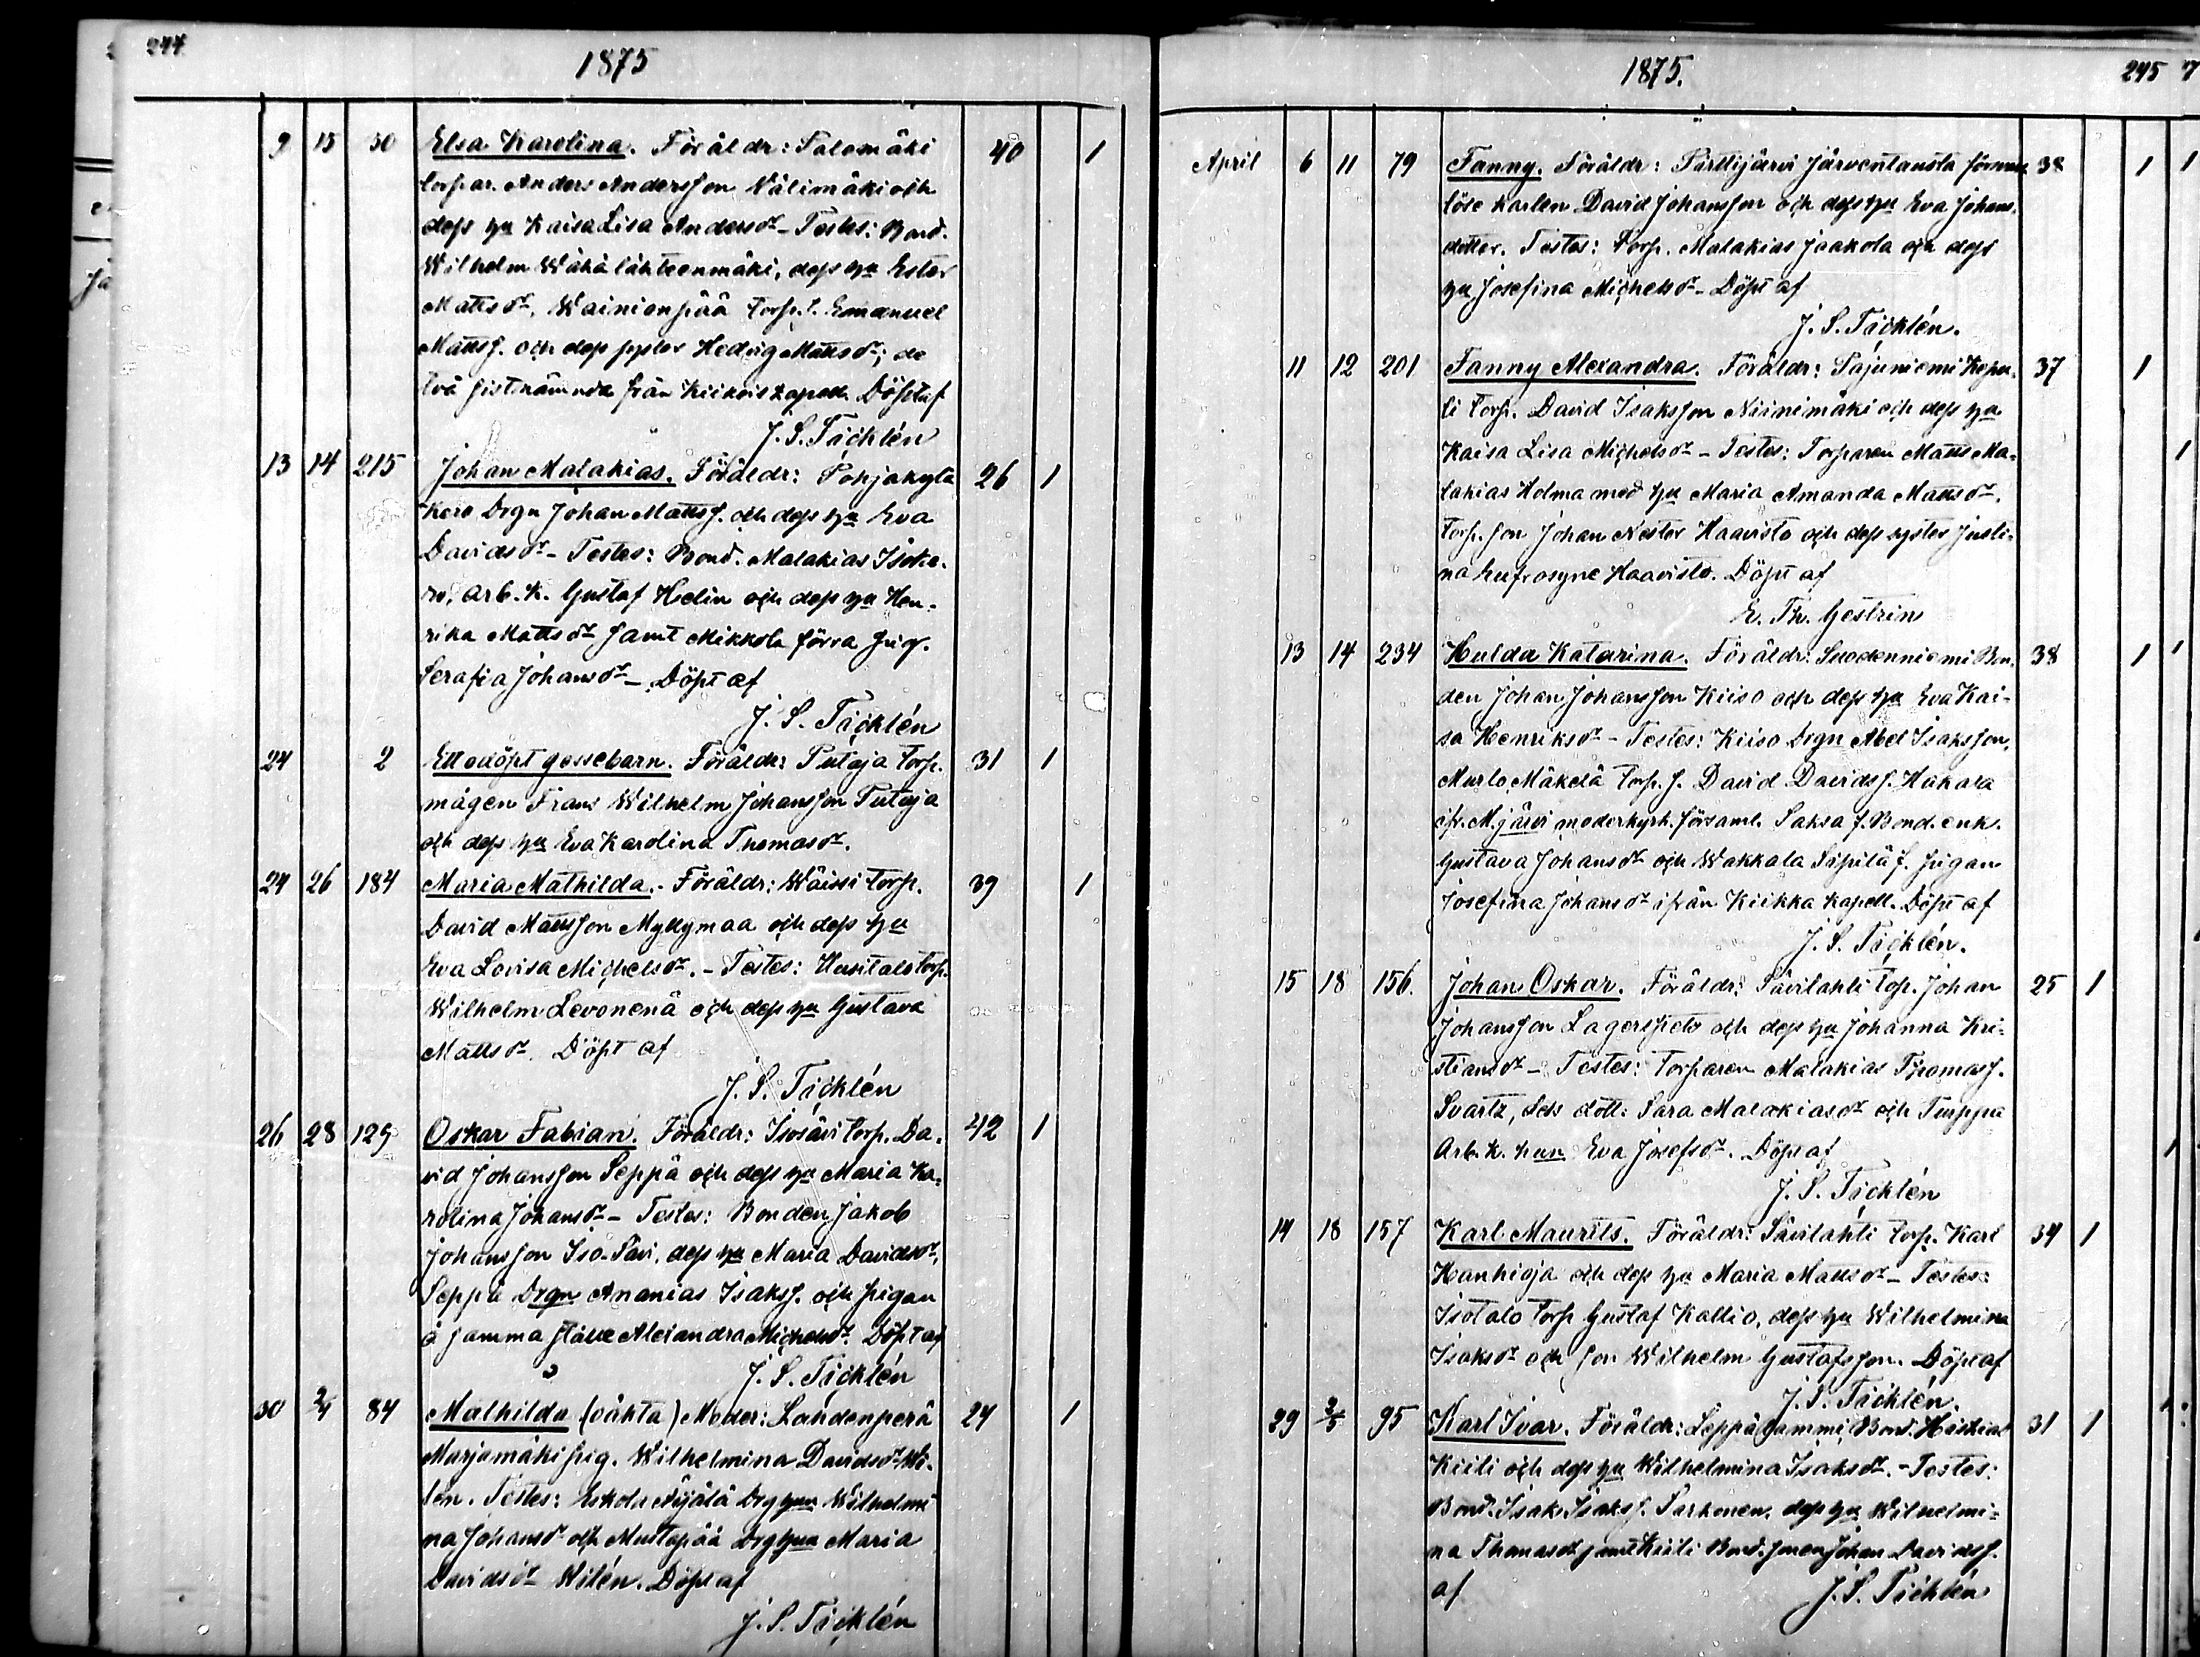 244
1875
9 15 50 Elsa Karolina. Föräldr: Palomäki 40 1
torpar. Anders Andersson Välimäki och
dess hu Kaisa Lisa Andersdr – Testes: Bond.
Wilhelm Wähä lähteenmäki, dess hu Ester
Mattsdr, Wainionpää torp. s. Emanuel
Mattss. och dess syster Hedvig Mattsdr; de
två sistnämnda från Kiikois kapell. Döpt af
J. S. Täcklén
13 14 215 Johan Malakias. Föräldr: Pohjakylä 26 1
Kero Drgn Johan Mattss. och dess hu Eva
Davidsdr – Testes: Bond. Malakias Isoke-
ro, Arb. K. Gustaf Helin och dess hu Hen-
rika Mattsdr samt Mikkola förra pig.
Serafia Johansdr –. Döpt af
J. S. Täcklén
24 2 Ett odöpt gossebarn. Föräldr: Putaja torp. 31 1
mågen Frans Wilhelm Johansson Putaja
och dess hu Eva Karolina Thomasdr.
24 26 184 Maria Mathilda. - Föräldr: Wäissi torp. 39 1
David Mattsson Myllymaa och dess hu
Eva Lovisa Michelsdr. – Testes: Uusitalo torp.
Wilhelm Levonenä och dess hu Gustava
Mattsdr. Döpt af
J. S. Täcklén
26 28 129 Oskar Fabian. Föräldr: Isosävi torp. Da- 42 1
vid Johansson Seppä och dess hu Maria Ka-
rolina Johansdr – Testes: Bonden Jakob
Johansson Iso-Sävi, dess hu Maria Davidsdr,
Seppä Drgn Ananias Isakss. och pigan
å samma ställe Alexandra Michelsdr. Döpt af
J. S. Täcklén
30 2/4 84 Mathilda (oähta) Moder: Laudenperä 24 1
Marjamäki pig. Wilhelmina Davidsdr Wi-
len. Testes: Eskola Äijälä Drg hun Wilhelmi
na Johansdr och Mustapää Drg hun Maria
Davidsdr Wilén. Döpt af
J. S. Täcklén
1875.
245
April 6 11 79 Fanny. Föräldr: Pärttijärvi Järventausta 38 1
löse karlen David Johansson och dess hu Eva Johans-
dotter. Testes: Torp. Malakias Jaakola och dess
hu Josefina Michelsdr – Döpt af
J. S. Täcklén.
11 12 201 Fanny Alexandra. Föräldr: Pajuniemi Kepu- 37 1
li torp. David Isaksson Niinimäki och dess hu
Kaisa Lisa Michelsdr – Testes: Torparen Matts Ma-
lakias Holma med hu Maria Amanda Mattsdr,
torp. son Johan Nestor Haavisto och dess syster Justi-
na Eufrosyne Haavisto. Döpt af
E. Th. Gestrin
13 14 234 Hulda Katarina. Föräldr: Suodenniemi Bon- 38 1
den Johan Johansson Kiiso och dess hu Eva Kai-
sa Henriksdr – Testes: Kiiso Drgn Abel Isaksson,
Murto Mäkelä torp. s. David Davidss. Hakala
ifr. M.järvi moderkyrk. församl. Saksa f. Bond. enk.
Gustava Johansdr och Wakkala Sipilä f. pigan
Josefina Johansdr ifrån Kiikka kapell. Döpt af
J. S. Täcklén.
15 18 156. Johan Oskar. Föräldr: Sävilahti top. Johan 25 1
Johansson Lagerspets och dess hu Johanna Kri-
stiansdr – Testes: torparen Malakias Thomass.
Svartz, dess dott: Sara Malakiasdr och Turppa
Arb. K. hun Eva Josefsdr. Döpt af
J. S. Täcklén
14 18 157 Karl Maurits. Föräldr: Sävilahti torp. Karl 34 1
Hanhioja och dess hu Maria Mattsdr – Testes:
Isotalo torp Gustaf Kallio, dess hu Wilhelmina
Isaksdr och son Wilhelm Gustafsson. Döpt af
J. S. Täcklén.
29 2/5 95 Karl Ivar. Föräldr: Leppälammi, Bond. Heskias 31 1
Kiili och dess hu Wilhelmina Isaksdr. – Testes:
Bond. Isak Isakss. Sarkonen, dess hu Wilhelmi-
na Thomasdr samt Kiili Bond. sonen Johan Davidss.
af J. S. Täcklén